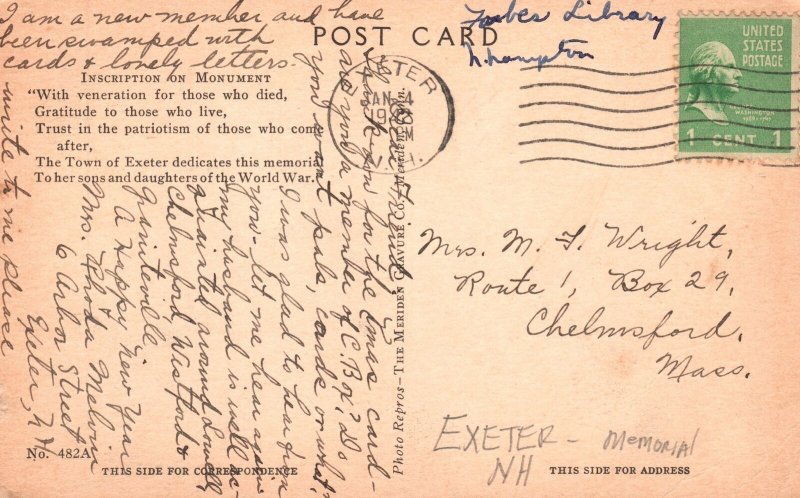 I am a new member and have
been swamped with
cards & lonely letters.
write to me please
POST CARD
Forbes Library
N'hampton
UNITED
STATES
POSTAGE
WASHINGTON
1 CENT 1
INSCRIPTION ON MONUMENT
"With veneration for those who died,
Gratitude to those who live,
Trust in the patriotism of those who come
after,
The Town of Exeter dedicates this memorial
To her sons and daughters of the World War."
Dear Friend,
Thank you for the Xmas card-
are you a member of C. Box? Do
you want pals, cards or what?
I was glad to hear from
you - let me hear again.
My husband is well ac-
quainted around Lowell,
Chelmsford, Westford &
Graniteville.
A Happy New Year
Mrs. Rhoda Melvin
6 Arbor Street
Exeter, N.H.
Photo Repros—THE MERIDEN GRAVURE CO., Meriden, Conn.
Mrs. M. F. Wright,
Route 1, Box 29,
Chelmsford,
Mass.
EXETER - MEMORIAL
NH
No. 482A
THIS SIDE FOR CORRESPONDENCE
THIS SIDE FOR ADDRESS